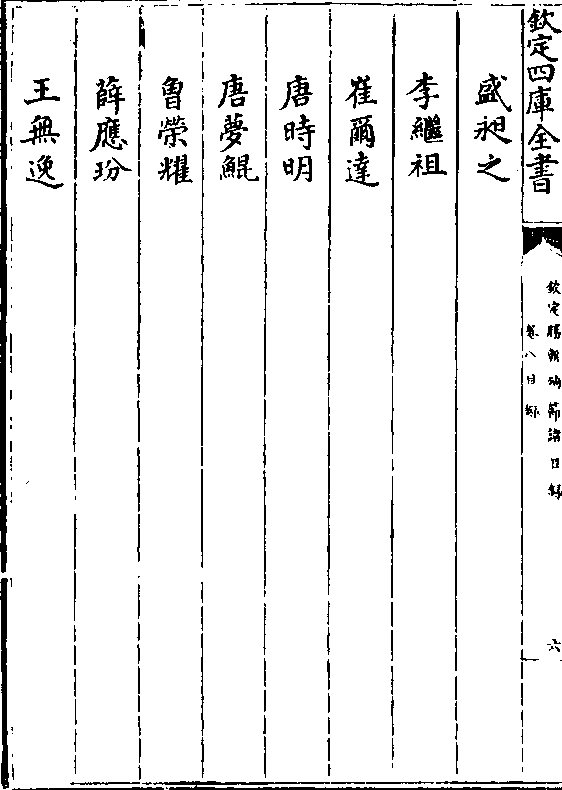 欽定四庫全書
欽定勝朝殉節諸臣錄
卷八目錄
六
盛昶之
李繼祖
崔爾達
唐時明
唐夢鯤
魯榮耀
薛應玢
王無逸